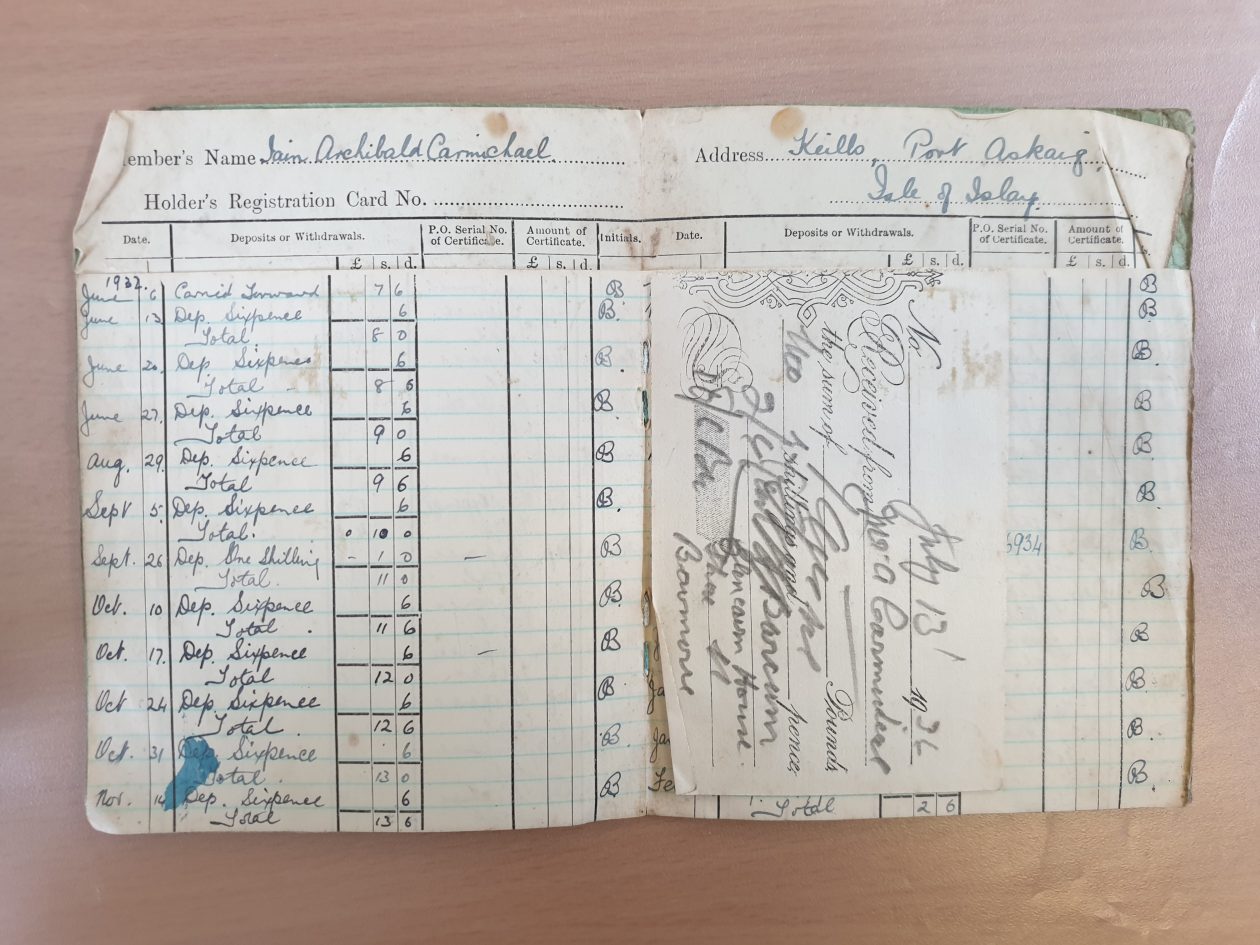 ember's Name Iain Archibald Carmichael
Address Keills, Port Askaig,
Isle of Islay.
Holder's Registration Card No.
Date. Deposits or Withdrawals. P.O. Serial No. of Certificate. Amount of Certificate. Initials.
£ s. d. £ s. d.
1932.
June 6 Carried Forward 7 6 B
June 13 Dep. Sixpence 6 B.
Total 8 0
June 20. Dep. Sixpence 6 B
Total 8 6
June 27. Dep. Sixpence 6 B
Total 9 0
Aug. 29. Dep. Sixpence 6 B
Total 9 6
Sept 5. Dep. Sixpence 6 B.
Total. 0 10 0
Sept. 26 Dep. One Shilling - 1 0 – B
Total. 11 0
Oct. 10 Dep. Sixpence 6 B
Total. 11 6
Oct. 17. Dep. Sixpence 6 – B
Total 12 0
Oct 24 Dep. Sixpence 6 B
Total. 12 6
Oct. 31 Dep. Sixpence 6 B
Total. 13 0
Nov. 14 Dep. Sixpence 6 B
Total 13 6
Date. Deposits or Withdrawals. P.O. Serial No. of Certificate. Amount of Certificate.
£ s. d. £ s. d.
B
B
B.
B
B
5934 B.
B
B
B.
B
Ja
Ja
Fe B.
Total 2 6
No. July 13 19
Received from
the sum of Pounds
shillings and pence.
Glencairn House
Shore St
Bowmore